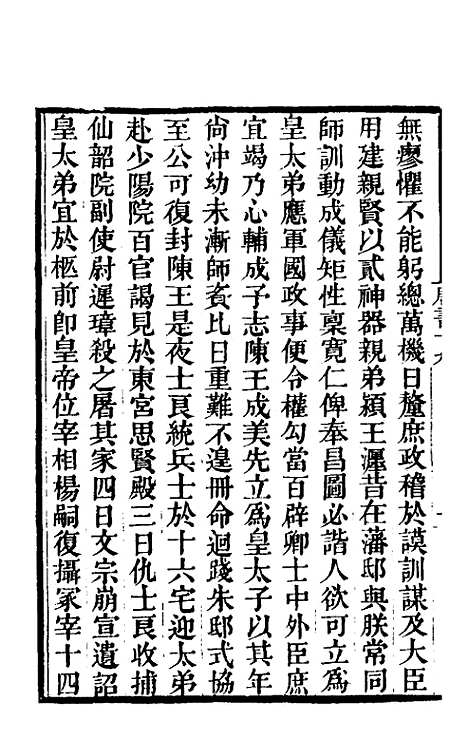 無瘳懼不能躬總萬機日釐庶政稽於謨訓謀及大臣
用建親賢以貳神器親弟潁王瀍昔在藩邸與朕常同
師訓動成儀矩性稟寬仁俾奉昌圖必諧人欲可立爲
皇太弟應軍國政事便令權勾當百辟卿士中外臣庶
宜竭乃心輔成予志陳王成美先立爲皇太子以其年
尙沖幼未漸師資比日重難不遑冊命迴踐朱邸式協
至公可復封陳王是夜士良統兵士於十六宅迎太弟
赴少陽院百官謁見於東宮思賢殿三日仇士良收捕
仙韶院副使尉遲璋殺之屠其家四日文宗崩宣遺詔
皇太弟宜於柩前卽皇帝位宰相楊嗣復攝冢宰十四